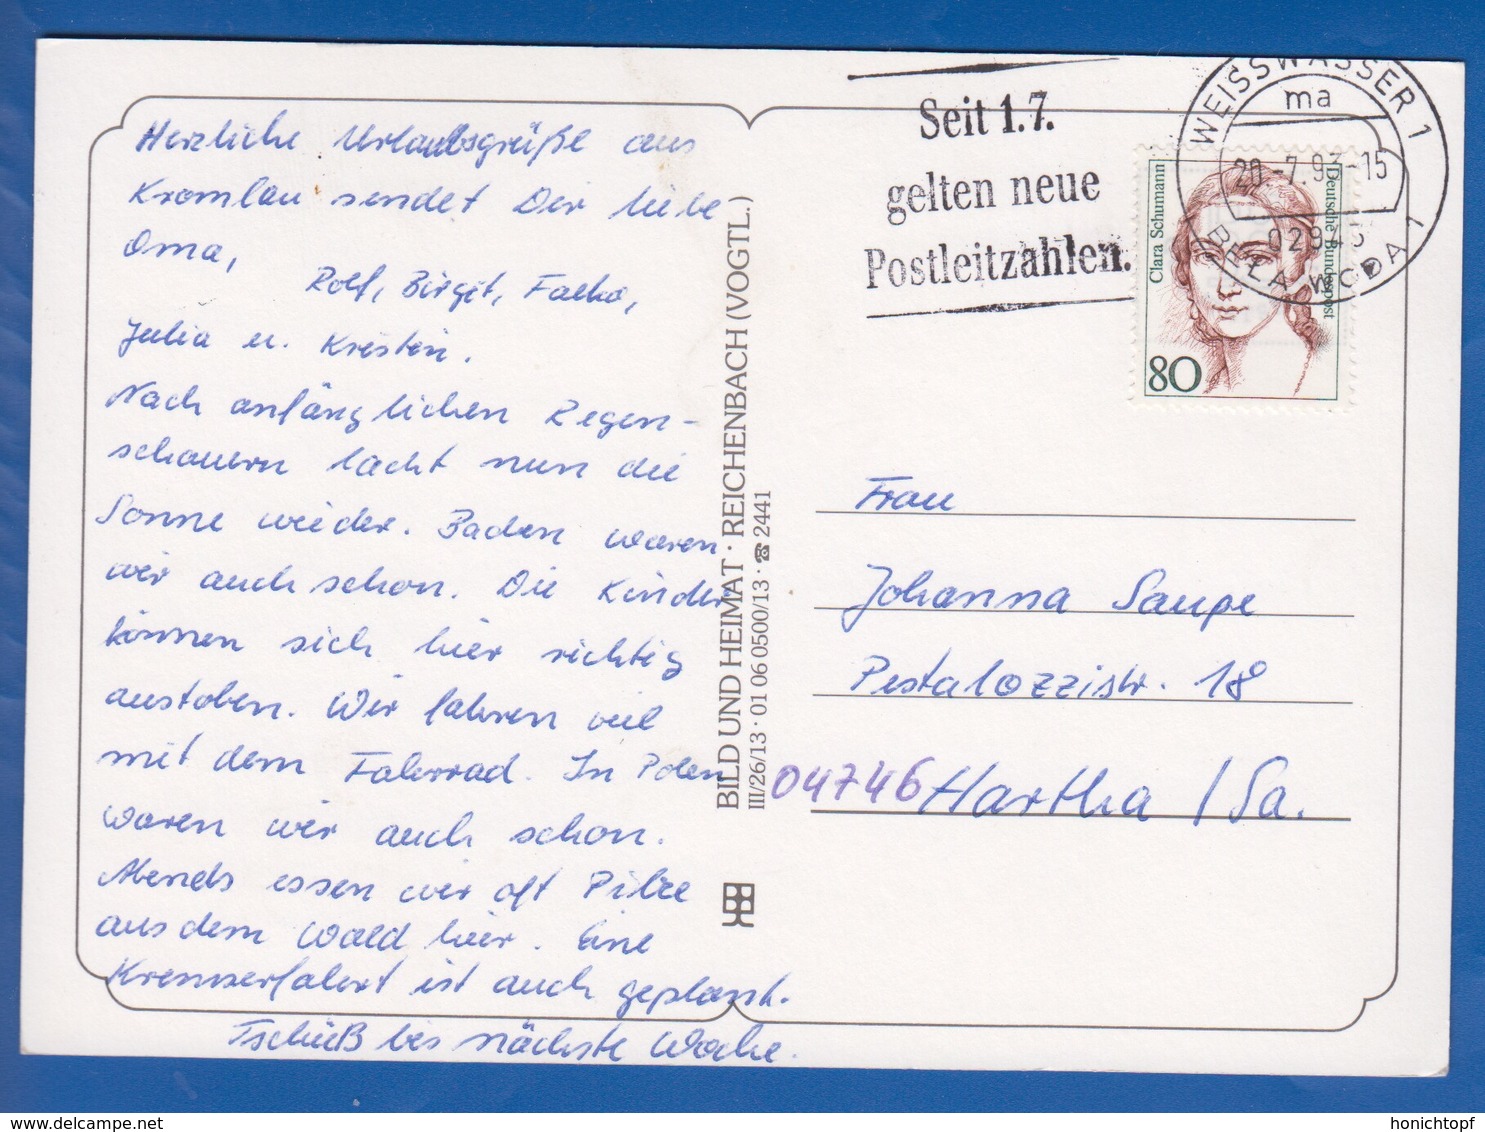 Herzliche Urlaubsgrüße aus
Kromlau sendet Dir liebe
Oma,
Rolf, Birgit, Falko,
Julia u. Kristin.
Nach anfänglichen Regen-
schauern lacht nun die
Sonne wieder. Baden waren
wir auch schon. Die Kinder
können sich hier richtig
austoben. Wir fahren viel
mit dem Fahrrad. In Polen
waren wir auch schon.
Abends essen wir oft Pilze
aus dem Wald hier. Eine
Kremserfahrt ist auch geplant.
Tschüß bis nächste Woche.
BILD UND HEIMAT · REICHENBACH (VOGTL.)
III/26/13 · 01 06 0500/13 · ☎ 2441
Seit 1.7.
gelten neue
Postleitzahlen.
WEISSWASSER 1
ma
20.-7.93-15
02943
Clara Schumann
Deutsche Bundespost
80
Frau
Johanna Saupe
Pestalozzistr. 18
04746 Hartha / Sa.
www.delcampe.net
honichtopf